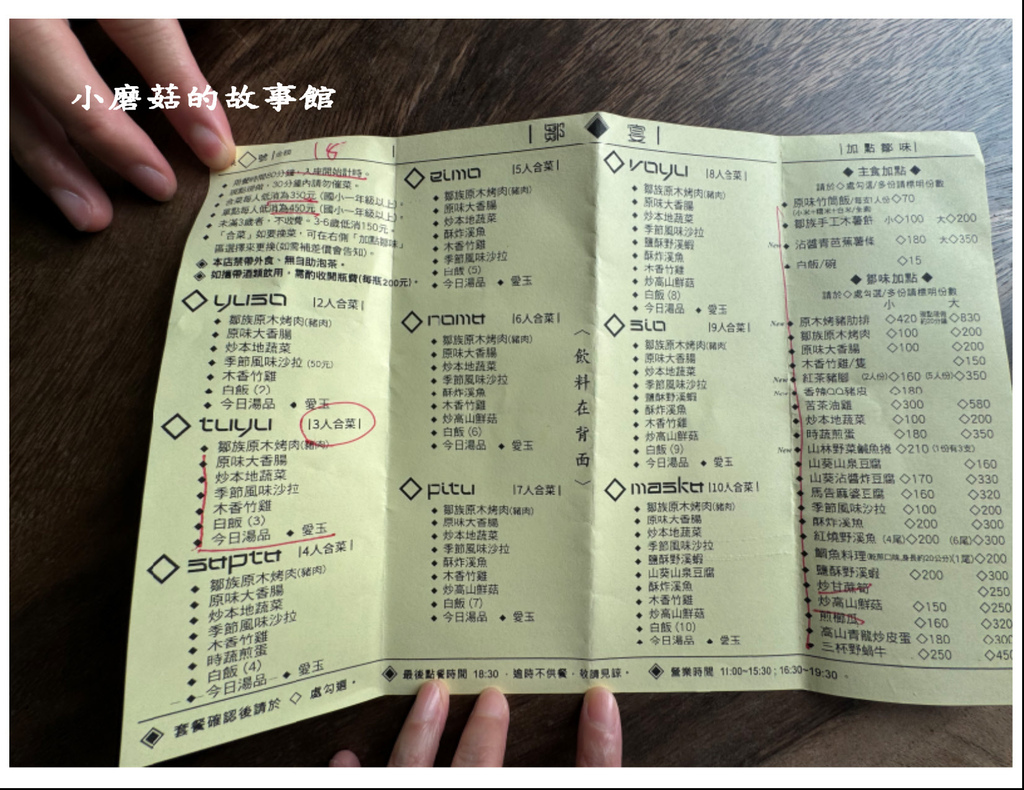 小磨菇的故事館
號 18
用餐時間80分鐘，入座開始計時。
現點現做，30分鐘內請勿催菜。
合菜每人低消為350元(國小一年級以上)。
單點每人低消為450元(國小一年級以上)。
未滿3歲者，不收費。3-6歲低消150元。
「合菜」如要換菜，可在右側「加點鄒味」
區選擇來更換(如需補差價會告知)。
本店禁帶外食、無自助泡茶。
如攜帶酒類飲用，需酌收開瓶費(每瓶200元)。
yuso |2人合菜|
鄒族原木烤肉(豬肉)
原味大香腸
炒本地蔬菜
季節風味沙拉 (50元)
木香竹雞
白飯 (2)
今日湯品 愛玉
tuyu |3人合菜|
鄒族原木烤肉(豬肉)
原味大香腸
炒本地蔬菜
季節風味沙拉
木香竹雞
白飯 (3)
今日湯品 愛玉
sʉptʉ |4人合菜|
鄒族原木烤肉(豬肉)
原味大香腸
炒本地蔬菜
季節風味沙拉
木香竹雞
時蔬煎蛋
白飯 (4)
今日湯品 愛玉
套餐確認後請於 ◇ 處勾選。
|鄒 ◆ 宴|
eimo |5人合菜|
鄒族原木烤肉(豬肉)
原味大香腸
炒本地蔬菜
酥炸溪魚
木香竹雞
季節風味沙拉
白飯 (5)
今日湯品 愛玉
nomʉ |6人合菜|
鄒族原木烤肉(豬肉)
原味大香腸
炒本地蔬菜
季節風味沙拉
酥炸溪魚
木香竹雞
炒高山鮮菇
白飯 (6)
今日湯品 愛玉
pitu |7人合菜|
鄒族原木烤肉(豬肉)
原味大香腸
炒本地蔬菜
酥炸溪魚
木香竹雞
炒高山鮮菇
白飯 (7)
今日湯品 愛玉
〈飲料在背面〉
最後點餐時間 18:30，逾時不供餐，敬請見諒。
voyu |8人合菜|
鄒族原木烤肉(豬肉)
原味大香腸
炒本地蔬菜
季節風味沙拉
鹽酥野溪蝦
酥炸溪魚
木香竹雞
炒高山鮮菇
白飯 (8)
今日湯品 愛玉
sio |9人合菜|
鄒族原木烤肉(豬肉)
原味大香腸
炒本地蔬菜
季節風味沙拉
鹽酥野溪蝦
酥炸溪魚
木香竹雞
炒高山鮮菇
白飯 (9)
今日湯品 愛玉
maskʉ |10人合菜|
鄒族原木烤肉(豬肉)
原味大香腸
炒本地蔬菜
季節風味沙拉
鹽酥野溪蝦
山葵山泉豆腐
酥炸溪魚
木香竹雞
炒高山鮮菇
白飯 (10)
今日湯品 愛玉
營業時間 11:00~15:30；16:30~19:30
|加點鄒味|
◆ 主食加點 ◆
請於◇處勾選/多份請標明份數
原味竹筒飯/每支1人份◇70
(小米+糯米+白米/全素)
鄒族手工木薯餅 小◇100 大◇200
New 沾醬青芭蕉薯條 ◇180 大◇350
白飯/碗 ◇15
◆ 鄒味加點 ◆
請於◇處勾選/多份請標明份數
小 大
New 原木烤豬肋排 ◇420 ◇830
鄒族原木烤肉 ◇100 ◇200
原味大香腸 ◇100 ◇200
木香竹雞/隻 ◇150
New 紅茶豬腳 (2人份)◇160 (5人份)◇350
New 香辣QQ豬皮 ◇180
苦茶油雞 ◇300 ◇580
炒本地蔬菜 ◇100 ◇200
時蔬煎蛋 ◇180 ◇350
New 山林野菜鹹魚捲 ◇210 (1份有3支)
山葵山泉豆腐 ◇160
山葵沾醬炸豆腐 ◇170 ◇330
馬告麻婆豆腐 ◇160 ◇320
季節風味沙拉 ◇100 ◇200
酥炸溪魚 ◇200 ◇300
紅燒野溪魚 (4尾)◇200 (6尾)◇300
鯛魚料理(乾煎口味,身長約20公分)(1尾)◇200
鹽酥野溪蝦 ◇200 ◇300
炒甘蔗筍 ◇250
炒高山鮮菇 ◇150 ◇250
煎櫛瓜 ◇160 ◇320
高山青龍炒皮蛋 ◇180 ◇300
三杯野蝸牛 ◇250 ◇450